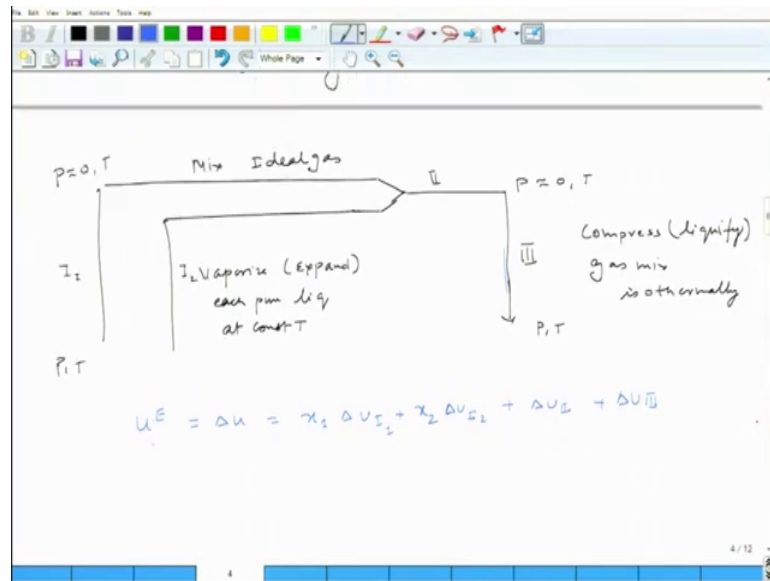 File Edit View Insert Actions Tools Help
B I
Whole Page
P≈0, T
Mix Ideal gas
II
P ≈ 0, T
I₁
I₂ Vaporize (Expand)
each pure liq
at const T
III
Compress (liquify)
gas mix
isothermally
P, T
P, T
u^E = Δu = x₁ ΔU_I₁ + x₂ ΔU_I₂ + ΔU_II + ΔU III
4 / 12
4